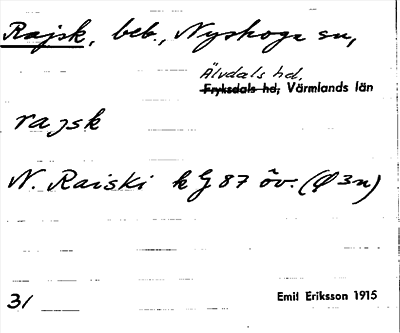 Rajsk, beb., Nyskoga sn,
Älvdals hd.
Fryksdals hd, Värmlands län
rajsk
N. Raiski k G 87 öv. (Ø 3n)
31
Emil Eriksson 1915